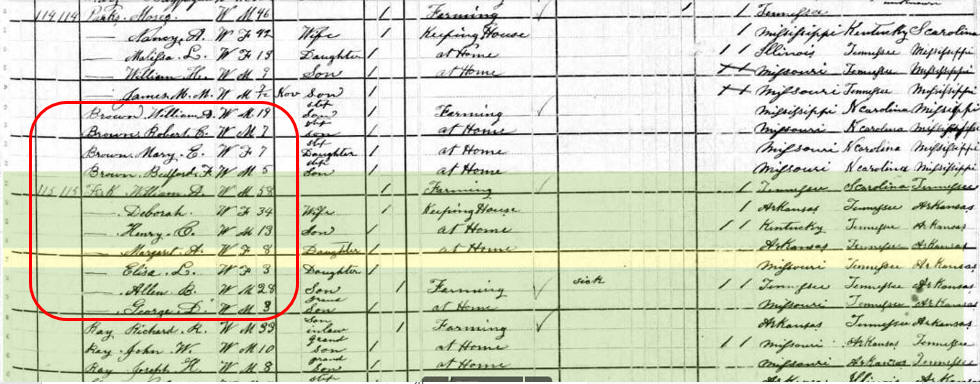 unknown
114 114 Parks, Moses W M 46 1 Farming 1 1 Tennessee
— Nancy A. W F 42 Wife 1 Keeping House 1 1 Mississippi Kentucky S carolina
— Malissa L. W F 13 Daughter 1 at Home 1 1 Illinois Tennessee Mississippi
— William H. W M 9 Son 1 at Home Missouri Tennessee Mississippi
— James M. M. W M Nov Son 1 Missouri Tennessee Mississippi
Brown William D. W M 19 step Son 1 Farming Mississippi N carolina Mississippi
Brown Robert C. W M 7 step Son 1 at Home Missouri N carolina Mississippi
Brown Mary E. W F 7 step Daughter 1 at Home Missouri N carolina Mississippi
Brown Bedford F. W M 5 step Son 1 at Home Missouri N carolina Mississippi
115 115 William A. W M 58 1 Farming 1 1 Tennessee S carolina Tennessee
— Deborah W F 34 Wife 1 Keeping House 1 Arkansas Tennessee Arkansas
— Henry C. W M 13 Son 1 at Home 1 1 Kentucky Tennessee Arkansas
— Margaret A. W F 8 Daughter 1 at Home Arkansas Tennessee Arkansas
— Eliza L. W F 3 Daughter 1 Missouri Tennessee Arkansas
— Allen B. W M 28 Son 1 Farming sick 1 1 Tennessee Tennessee Arkansas
— George D. W M 3 grand Son 1 at Home Missouri Tennessee Arkansas
Ray Richard R. W M 33 Son in law 1 Farming Arkansas Tennessee Arkansas
Ray John W. W M 10 grand Son 1 at Home 1 1 Missouri Arkansas Tennessee
Ray Joseph H. W M 8 grand Son 1 at Home Missouri Arkansas Tennessee
step Arkansas Illinois Arkansas